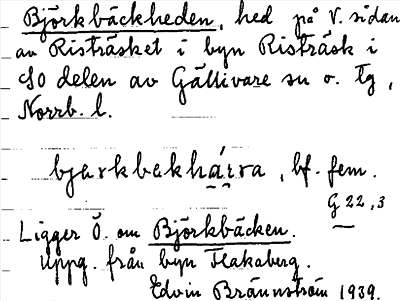 Björkbäckheden, hed på V. sidan
av Risträsket i byn Risträsk i
SO delen av Gällivare sn o. tg,
Norrb. l.
bjarkbekhárra, bf. fem.
G 22,3
Ligger Ö. om Björkbäcken.
Uppg. från byn Flakaberg.
Edvin Brännström 1939.